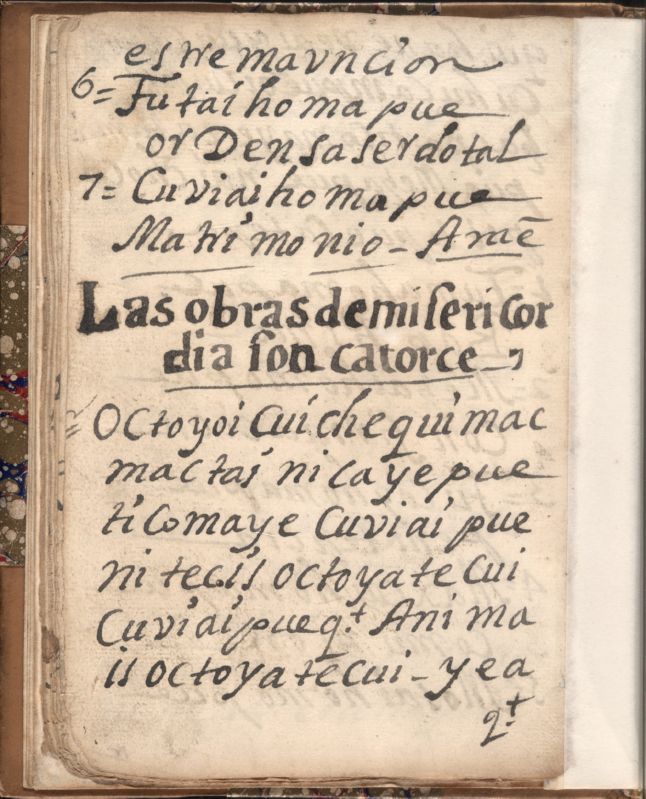 estremavncion
6= Futaihomapue
orDensaserdotal
7= Cuviaihomapue
Matrimonio - Amē
Las obras demisericor
dia son catorce
Octoyoi cuichequimac
mactai nicayepue
ticomaye Cuviai pue
nitecis octoyatecui
Cuviaipueq.t Anima
is octoyatecui - yea
q.t